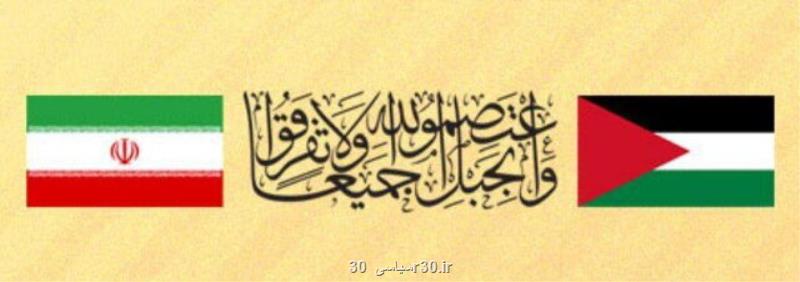 وَاعْتَصِمُوا بِحَبْلِ اللهِ جَمِيعًا وَلَا تَفَرَّقُوا
30 سیاسیr30.ir